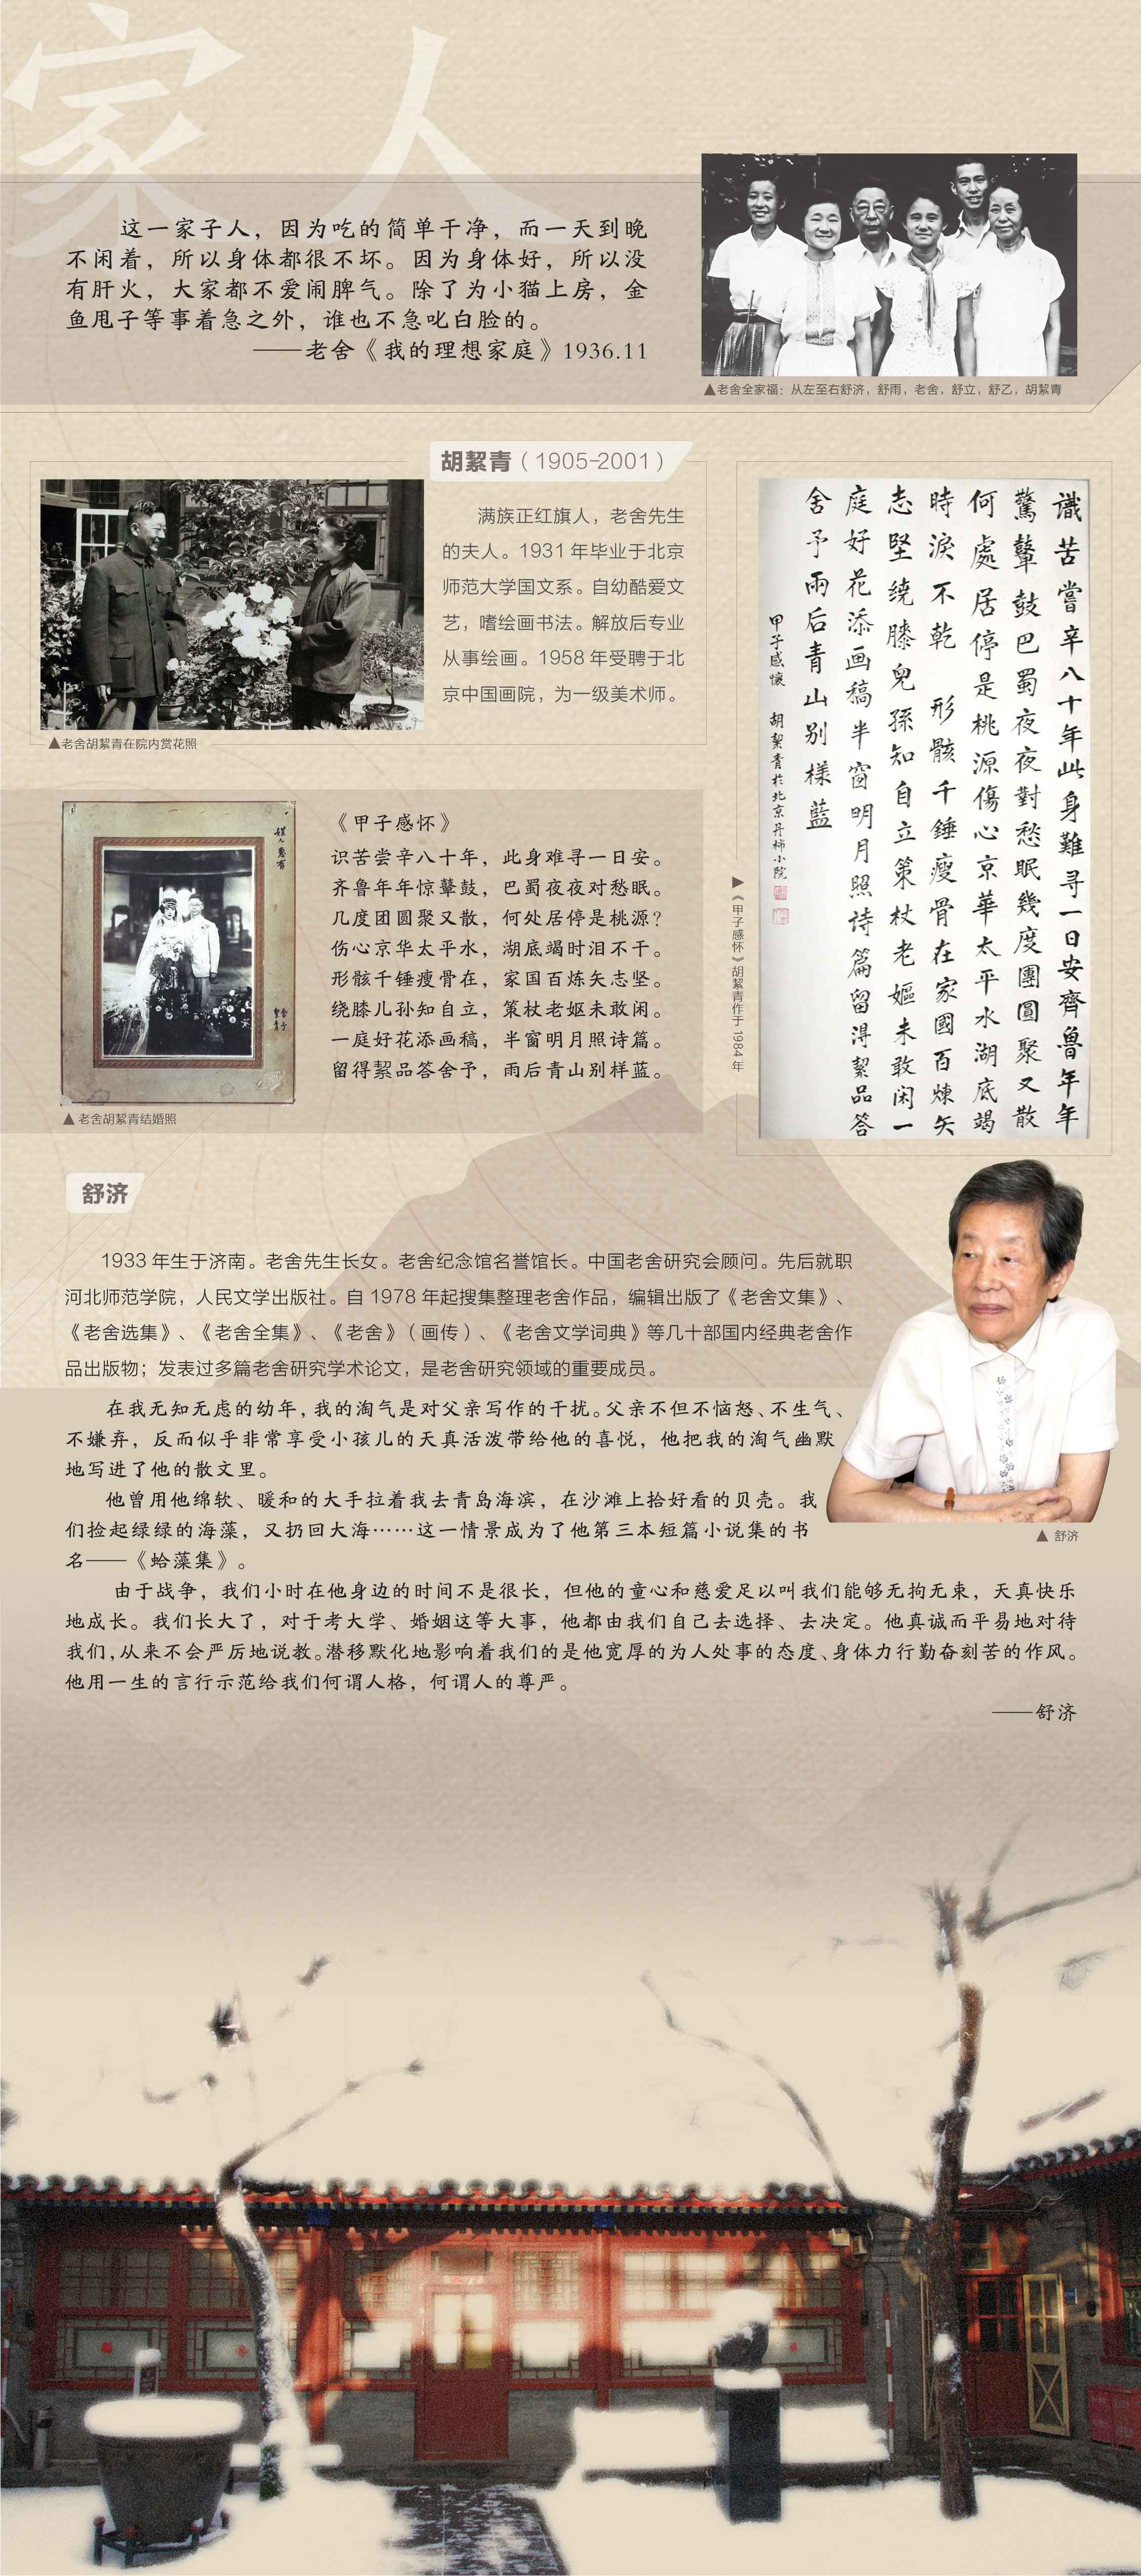 家人
这一家子人，因为吃的简单干净，而一天到晚
不闲着，所以身体都很不坏。因为身体好，所以没
有肝火，大家都不爱闹脾气。除了为小猫上房，金
鱼甩子等事着急之外，谁也不急叱白脸的。
——老舍《我的理想家庭》1936.11
▲老舍全家福：从左至右舒济，舒雨，老舍，舒立，舒乙，胡絜青
胡絜青（1905-2001）
满族正红旗人，老舍先生
的夫人。1931年毕业于北京
师范大学国文系。自幼酷爱文
艺，嗜绘画书法。解放后专业
从事绘画。1958年受聘于北
京中国画院，为一级美术师。
▲老舍胡絜青在院内赏花照
識苦嘗辛八十年此身難寻一日安齊魯年年
驚鼙鼓巴蜀夜夜對愁眠幾度團圓聚又散
何處居停是桃源傷心京華太平水湖底竭
時淚不乾 形骸千錘瘦骨在家國百煉矢
志堅繞膝兒孫知自立策杖老嫗未敢闲一
庭好花添画稿半窗明月照诗篇留淂絜品答
舍予雨后青山别樣蓝
甲子感懷 胡絜青於北京丹柿小院
▶《甲子感怀》胡絜青作于1984年
媒人惠存
舍予
絜青
▲老舍胡絜青结婚照
《甲子感怀》
识苦尝辛八十年，此身难寻一日安。
齐鲁年年惊鼙鼓，巴蜀夜夜对愁眠。
几度团圆聚又散，何处居停是桃源？
伤心京华太平水，湖底竭时泪不干。
形骸千锤瘦骨在，家国百炼矢志坚。
绕膝儿孙知自立，策杖老妪未敢闲。
一庭好花添画稿，半窗明月照诗篇。
留得絜品答舍予，雨后青山别样蓝。
舒济
1933年生于济南。老舍先生长女。老舍纪念馆名誉馆长。中国老舍研究会顾问。先后就职
河北师范学院，人民文学出版社。自1978年起搜集整理老舍作品，编辑出版了《老舍文集》、
《老舍选集》、《老舍全集》、《老舍》（画传）、《老舍文学词典》等几十部国内经典老舍作
品出版物；发表过多篇老舍研究学术论文，是老舍研究领域的重要成员。
在我无知无虑的幼年，我的淘气是对父亲写作的干扰。父亲不但不恼怒、不生气、
不嫌弃，反而似乎非常享受小孩儿的天真活泼带给他的喜悦，他把我的淘气幽默
地写进了他的散文里。
他曾用他绵软、暖和的大手拉着我去青岛海滨，在沙滩上拾好看的贝壳。我
们捡起绿绿的海藻，又扔回大海……这一情景成为了他第三本短篇小说集的书
名——《蛤藻集》。
▲ 舒济
由于战争，我们小时在他身边的时间不是很长，但他的童心和慈爱足以叫我们能够无拘无束，天真快乐
地成长。我们长大了，对于考大学、婚姻这等大事，他都由我们自己去选择、去决定。他真诚而平易地对待
我们，从来不会严厉地说教。潜移默化地影响着我们的是他宽厚的为人处事的态度、身体力行勤奋刻苦的作风。
他用一生的言行示范给我们何谓人格，何谓人的尊严。
——舒济